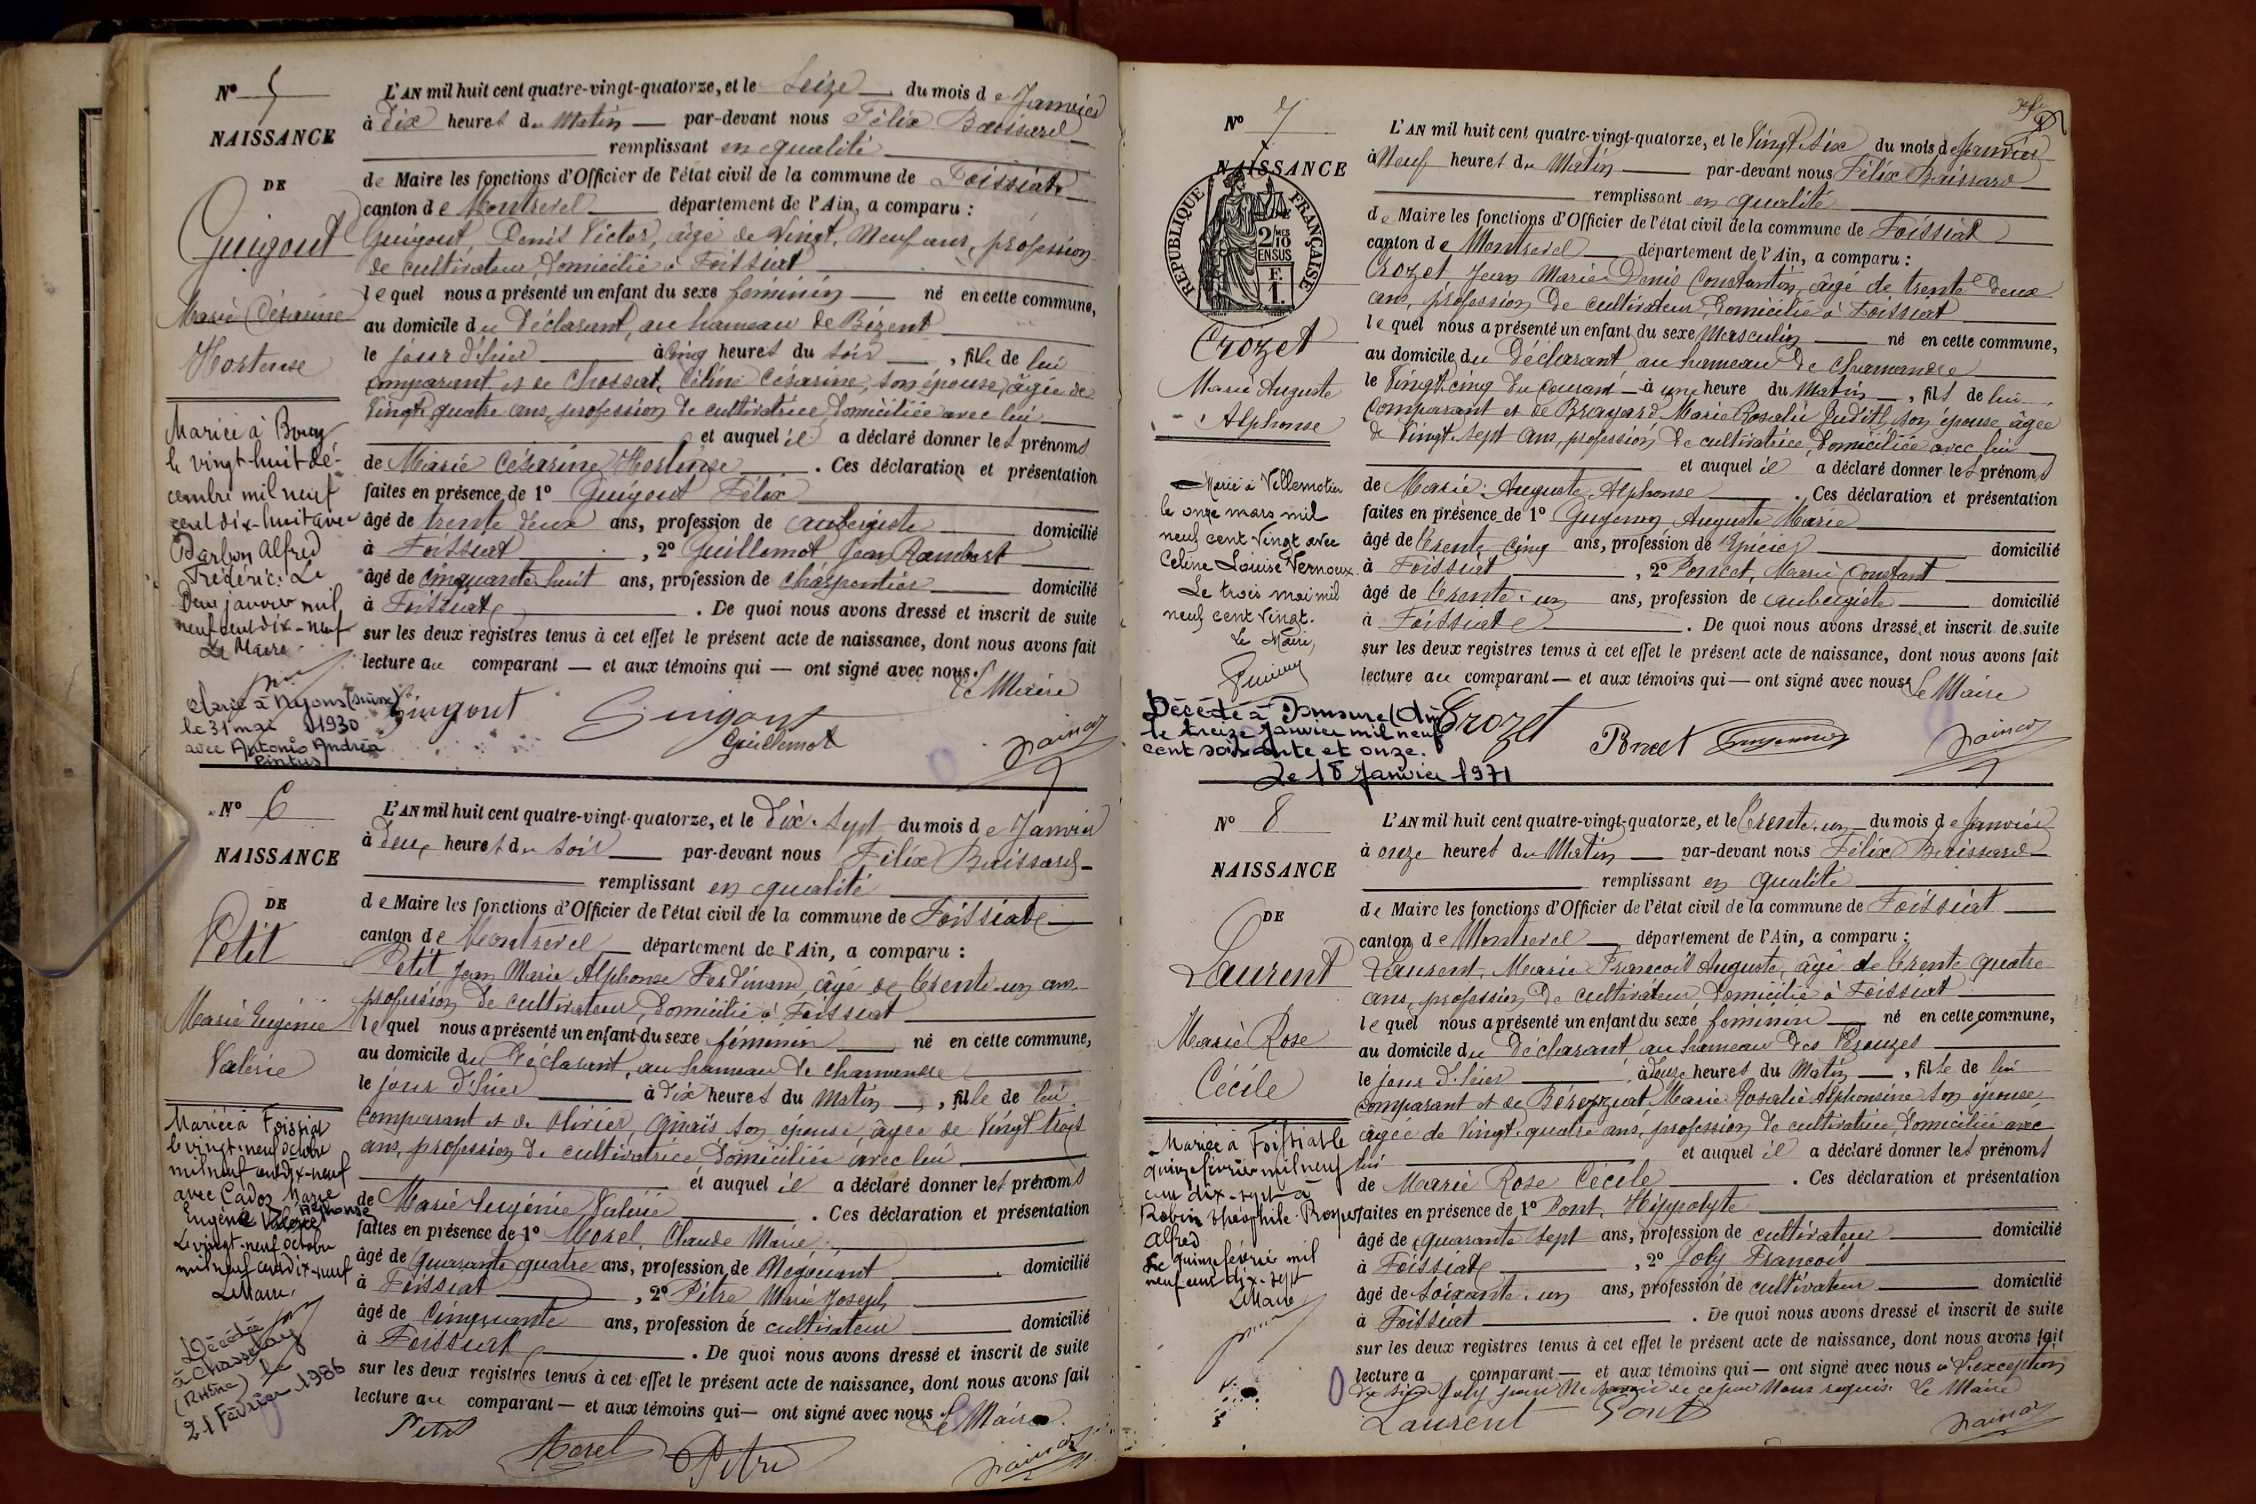 N° 5
NAISSANCE
DE
Guigout
Marie Césarine
Hortense
Mariée à Bourg
le vingt-huit dé-
cembre mil neuf
cent dix-huit avec
Alfred
Frédéric. Le
Deux janvier mil
neuf cent dix-neuf
Le Maire
Mariée à Nyons (Suisse)
le 31 mai 1930
avec Antonio Andréa
Pintus
L'AN mil huit cent quatre-vingt-quatorze, et le Seize du mois de Janvier
à Dix heures du Matin par-devant nous Félix Baissard
remplissant en qualité
de Maire les fonctions d'Officier de l'état civil de la commune de Foissiat
canton de Montrevel département de l'Ain, a comparu :
Guigout, Denis Victor, âgé de Vingt Neuf ans, profession
de cultivateur, domicilié à Foissiat
lequel nous a présenté un enfant du sexe féminin né en cette commune,
au domicile du Déclarant, au hameau de Bézent
le jour d'hier à cinq heures du soir, fille de lui
comparant et de Chossat, Céline Césarine, son épouse, âgée de
Vingt quatre ans, profession de cultivatrice, domiciliée avec lui
et auquel il a déclaré donner les prénoms
de Marie Césarine Hortense. Ces déclaration et présentation
faites en présence de 1° Guigout Félix
âgé de trente deux ans, profession de aubergiste domicilié
à Foissiat, 2° Guillemot Jean Rambert
âgé de Cinquante huit ans, profession de charpentier domicilié
à Foissiat. De quoi nous avons dressé et inscrit de suite
sur les deux registres tenus à cet effet le présent acte de naissance, dont nous avons fait
lecture au comparant — et aux témoins qui — ont signé avec nous. Le Maire
Guigout Guigout
Guillemot
N° 6
NAISSANCE
DE
Petit
Marie Eugénie
Valérie
Mariée à Foissiat
le vingt-neuf octobre
mil neuf cent dix-neuf
avec Cadoz Marie
Eugène Alphonse
Le vingt-neuf octobre
mil neuf cent dix-neuf
Le Maire,
Décédée
à Chasselay
(Rhône) le
21 Février 1986
L'AN mil huit cent quatre-vingt-quatorze, et le Dix-Sept du mois de Janvier
à Deux heures du Soir par-devant nous Félix Baissard
remplissant en qualité
de Maire les fonctions d'Officier de l'état civil de la commune de Foissiat
canton de Montrevel département de l'Ain, a comparu :
Petit Jean Marie Alphonse Ferdinand, âgé de trente-un ans
profession de cultivateur, domicilié à Foissiat
lequel nous a présenté un enfant du sexe féminin né en cette commune,
au domicile du Déclarant, au hameau de Chamandre
le jour d'hier à Dix heures du Matin, fille de lui
comparant et de Olivier, Anaïs son épouse, âgée de Vingt trois
ans, profession de cultivatrice domiciliée avec lui
et auquel il a déclaré donner les prénoms
de Marie Eugénie Valérie. Ces déclaration et présentation
faites en présence de 1° Morel, Claude Marie
âgé de Quarante quatre ans, profession de Négociant domicilié
à Foissiat, 2° Pitre Marie Joseph
âgé de Cinquante ans, profession de cultivateur domicilié
à Foissiat. De quoi nous avons dressé et inscrit de suite
sur les deux registres tenus à cet effet le présent acte de naissance, dont nous avons fait
lecture au comparant — et aux témoins qui — ont signé avec nous. Le Maire
Petit Morel Pitre
N° 7
NAISSANCE
RÉPUBLIQUE FRANÇAISE
2/10
EN SUS
Crozet
Marie Auguste
Alphonse
Marié à Villemotier
le onze mars mil
neuf cent vingt avec
Céline Louise Vernoux.
Le trois mai mil
neuf cent vingt.
Le Maire,
Décédé à Domsure (Ain)
le treize Janvier mil neuf
cent soixante et onze.
Le 18 Janvier 1971
L'AN mil huit cent quatre-vingt-quatorze, et le Vingt Six du mois de Janvier
à Neuf heures du Matin par-devant nous Félix Baissard
remplissant en qualité
de Maire les fonctions d'Officier de l'état civil de la commune de Foissiat
canton de Montrevel département de l'Ain, a comparu :
Crozet Jean Marie Denis Constantin, âgé de trente deux
ans, profession de cultivateur, domicilié à Foissiat
lequel nous a présenté un enfant du sexe Masculin né en cette commune,
au domicile du Déclarant, au hameau de Chamandre
le Vingt cinq du courant à une heure du Matin, fils de lui
comparant et de Brayard Marie Rosalie Judith, son épouse âgée
de Vingt-sept ans, profession de cultivatrice, domiciliée avec lui
et auquel il a déclaré donner les prénoms
de Marie Auguste Alphonse. Ces déclaration et présentation
faites en présence de 1° Guyenon Auguste Marie
âgé de trente cinq ans, profession de épicier domicilié
à Foissiat, 2° Poncet, Marie Constant
âgé de trente-un ans, profession de aubergiste domicilié
à Foissiat. De quoi nous avons dressé et inscrit de suite
sur les deux registres tenus à cet effet le présent acte de naissance, dont nous avons fait
lecture au comparant — et aux témoins qui — ont signé avec nous. Le Maire
Crozet Poncet
N° 8
NAISSANCE
DE
Laurent
Marie Rose
Cécile
Mariée à Foissiat le
quinze février mil neuf
cent dix-sept à
Robin Théophile Prosper
Alfred
Le quinze février mil
neuf cent dix-sept
Le Maire
L'AN mil huit cent quatre-vingt-quatorze, et le Trente-un du mois de Janvier
à onze heures du Matin par-devant nous Félix Baissard
remplissant en qualité
de Maire les fonctions d'Officier de l'état civil de la commune de Foissiat
canton de Montrevel département de l'Ain, a comparu :
Laurent, Marie François Auguste, âgé de trente quatre
ans, profession de cultivateur, domicilié à Foissiat
lequel nous a présenté un enfant du sexe féminin né en cette commune,
au domicile du Déclarant au hameau des
le jour d'hier à heures du Matin, fille de lui
comparant et de Marie Rosalie Alphonsine son épouse
âgée de Vingt-quatre ans, profession de cultivatrice, domiciliée avec
lui et auquel il a déclaré donner les prénoms
de Marie Rose Cécile. Ces déclaration et présentation
faites en présence de 1° Pont, Hippolyte
âgé de quarante sept ans, profession de cultivateur domicilié
à Foissiat, 2° Joly François
âgé de Soixante-un ans, profession de cultivateur domicilié
à Foissiat. De quoi nous avons dressé et inscrit de suite
sur les deux registres tenus à cet effet le présent acte de naissance, dont nous avons fait
lecture a comparant — et aux témoins qui — ont signé avec nous à l'exception
Joly pour ne savoir de ce par nous requis. Le Maire
Laurent Pont